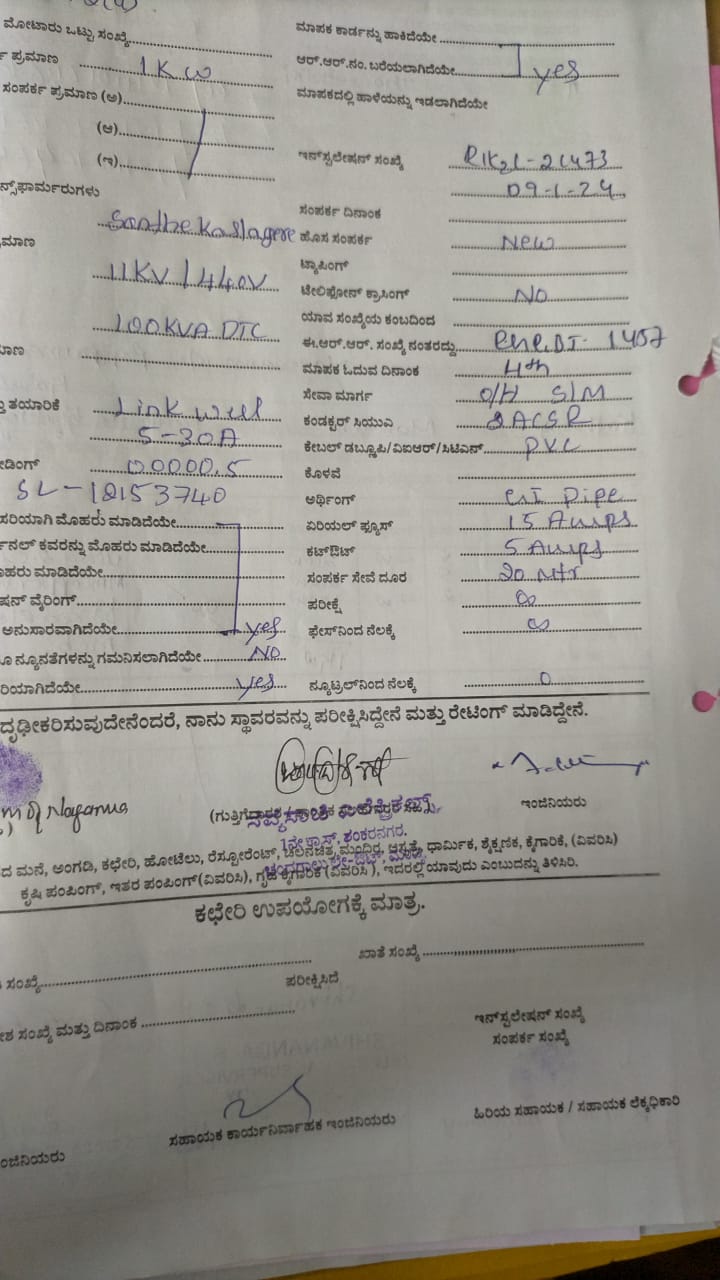 ಮೋಟಾರು ಒಟ್ಟು ಸಂಖ್ಯೆ
ಮಾಪಕ ಕಾರ್ಡನ್ನು ಹಾಕಿದೆಯೇ
ಪ್ರಮಾಣ 1 KW
ಆರ್.ಆರ್.ನಂ. ಬರೆಯಲಾಗಿದೆಯೇ yes
ಸಂಪರ್ಕ ಪ್ರಮಾಣ (ಅ)
ಮಾಪಕದಲ್ಲಿ ಹಾಳೆಯನ್ನು ಇಡಲಾಗಿದೆಯೇ
(ಆ)
(ಇ)
ಇನ್‌ಸ್ಟಲೇಷನ್ ಸಂಖ್ಯೆ
09-1-24
ನ್ಸ್‌ಫಾರ್ಮರುಗಳು
ಸಂಪರ್ಕ ದಿನಾಂಕ
ಹೊಸ ಸಂಪರ್ಕ New
ಮಾಣ
11KV / 440V
ಟ್ಯಾಪಿಂಗ್
ಟೇಲಿಫೋನ್ ಕ್ರಾಸಿಂಗ್ NO
100KVA DTC
ಯಾವ ಸಂಖ್ಯೆಯ ಕಂಬದಿಂದ
ಈ.ಆರ್.ಆರ್. ಸಂಖ್ಯೆ ನಂತರದ್ದು
ಮಾಣ
ಮಾಪಕ ಓದುವ ದಿನಾಂಕ 4th
ಸೇವಾ ಮಾರ್ಗ O/H S/M
ತಯಾರಿಕೆ Link well
ಕಂಡಕ್ಟರ್ ಸಿಯುಎ 2 ACSR
5-30A
ಕೇಬಲ್ ಡಬ್ಲ್ಯೂಪಿ/ವಿಐಆರ್/ಸಿಟಿಎಸ್ PVC
ಡಿಂಗ್ 00000.5
ಕೊಳವೆ
SL-18153740
ಅರ್ಥಿಂಗ್ GI Pipe
ಸರಿಯಾಗಿ ಮೊಹರು ಮಾಡಿದೆಯೇ
ಏರಿಯಲ್ ಫ್ಯೂಸ್ 15 Amps
ನಲ್ ಕವರನ್ನು ಮೊಹರು ಮಾಡಿದೆಯೇ
ಕಟ್‌ಔಟ್ 5 Amps
ಹರು ಮಾಡಿದೆಯೇ
ಸಂಪರ್ಕ ಸೇವೆ ದೂರ 20 Mtr
ಷನ್ ವೈರಿಂಗ್
ಪರೀಕ್ಷೆ ∞
ಅನುಸಾರವಾಗಿದೆಯೇ yes
ಫೇಸ್‌ನಿಂದ ನೆಲಕ್ಕೆ ∞
ನ್ಯೂನತೆಗಳನ್ನು ಗಮನಿಸಲಾಗಿದೆಯೇ NO
ರಿಯಾಗಿದೆಯೇ yes
ನ್ಯೂಟ್ರಲ್‌ನಿಂದ ನೆಲಕ್ಕೆ 0
ದೃಢೀಕರಿಸುವುದೇನೆಂದರೆ, ನಾನು ಸ್ಥಾವರವನ್ನು ಪರೀಕ್ಷಿಸಿದ್ದೇನೆ ಮತ್ತು ರೇಟಿಂಗ್ ಮಾಡಿದ್ದೇನೆ.
ಇಂಜಿನಿಯರು
1ನೇ ಕ್ರಾಸ್, ಶಂಕರನಗರ.
ದ ಮನೆ, ಅಂಗಡಿ, ಕಛೇರಿ, ಹೋಟೆಲು, ರೆಸ್ಟೋರೆಂಟ್, ಚಲನಚಿತ್ರ ಮಂದಿರ, ಆಸ್ಪತ್ರೆ, ಧಾರ್ಮಿಕ, ಶೈಕ್ಷಣಿಕ, ಕೈಗಾರಿಕೆ, (ವಿವರಿಸಿ)
ಕೃಷಿ ಪಂಪಿಂಗ್, ಇತರ ಪಂಪಿಂಗ್(ವಿವರಿಸಿ), ಗೃಹ ಕೈಗಾರಿಕೆ (ವಿವರಿಸಿ), ಇದರಲ್ಲಿ ಯಾವುದು ಎಂಬುದನ್ನು ತಿಳಿಸಿರಿ.
ಕಛೇರಿ ಉಪಯೋಗಕ್ಕೆ ಮಾತ್ರ.
ಸಂಖ್ಯೆ
ಖಾತೆ ಸಂಖ್ಯೆ
ಪರೀಕ್ಷಿಸಿದೆ
ಶ ಸಂಖ್ಯೆ ಮತ್ತು ದಿನಾಂಕ
ಇನ್‌ಸ್ಟಲೇಷನ್ ಸಂಖ್ಯೆ
ಸಂಪರ್ಕ ಸಂಖ್ಯೆ
ಸಹಾಯಕ ಕಾರ್ಯನಿರ್ವಾಹಕ ಇಂಜಿನಿಯರು
ಹಿರಿಯ ಸಹಾಯಕ / ಸಹಾಯಕ ಲೆಕ್ಕಧಿಕಾರಿ
ಂಜಿನಿಯರು